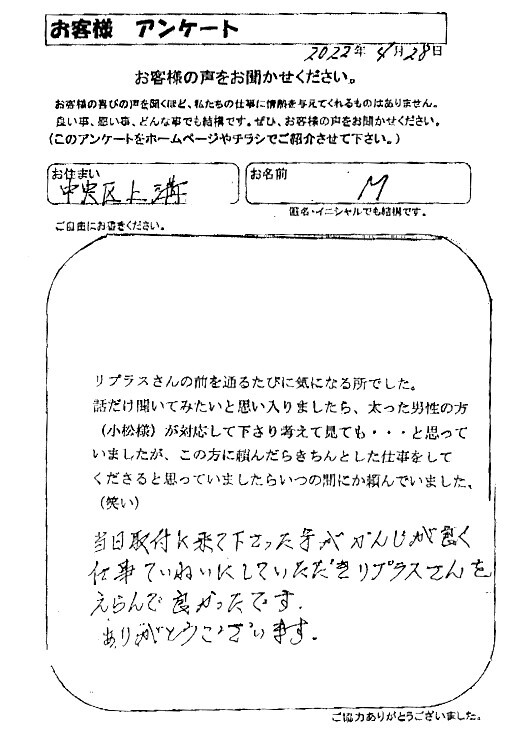 お客様 アンケート
2022年 4月 28日
お客様の声をお聞かせください。
お客様の喜びの声を聞くほど、私たちの仕事に情熱を与えてくれるものはありません。
良い事、悪い事、どんな事でも結構です。ぜひ、お客様の声をお聞かせください。
(このアンケートをホームページやチラシでご紹介させて下さい。)
お住まい
中央区上溝
お名前
M
匿名・イニシャルでも結構です。
ご自由にお書きください。
リプラスさんの前を通るたびに気になる所でした。
話だけ聞いてみたいと思い入りましたら、太った男性の方
(小松様)が対応して下さり考えて見ても・・・と思って
いましたが、この方に頼んだらきちんとした仕事をして
くださると思っていましたらいつの間にか頼んでいました、
(笑い)
当日取付に来て下さった方がかんじが良く
仕事ていねいにしていただきリプラスさんを
えらんで良かったです.
ありがとうございます.
ご協力ありがとうございました。